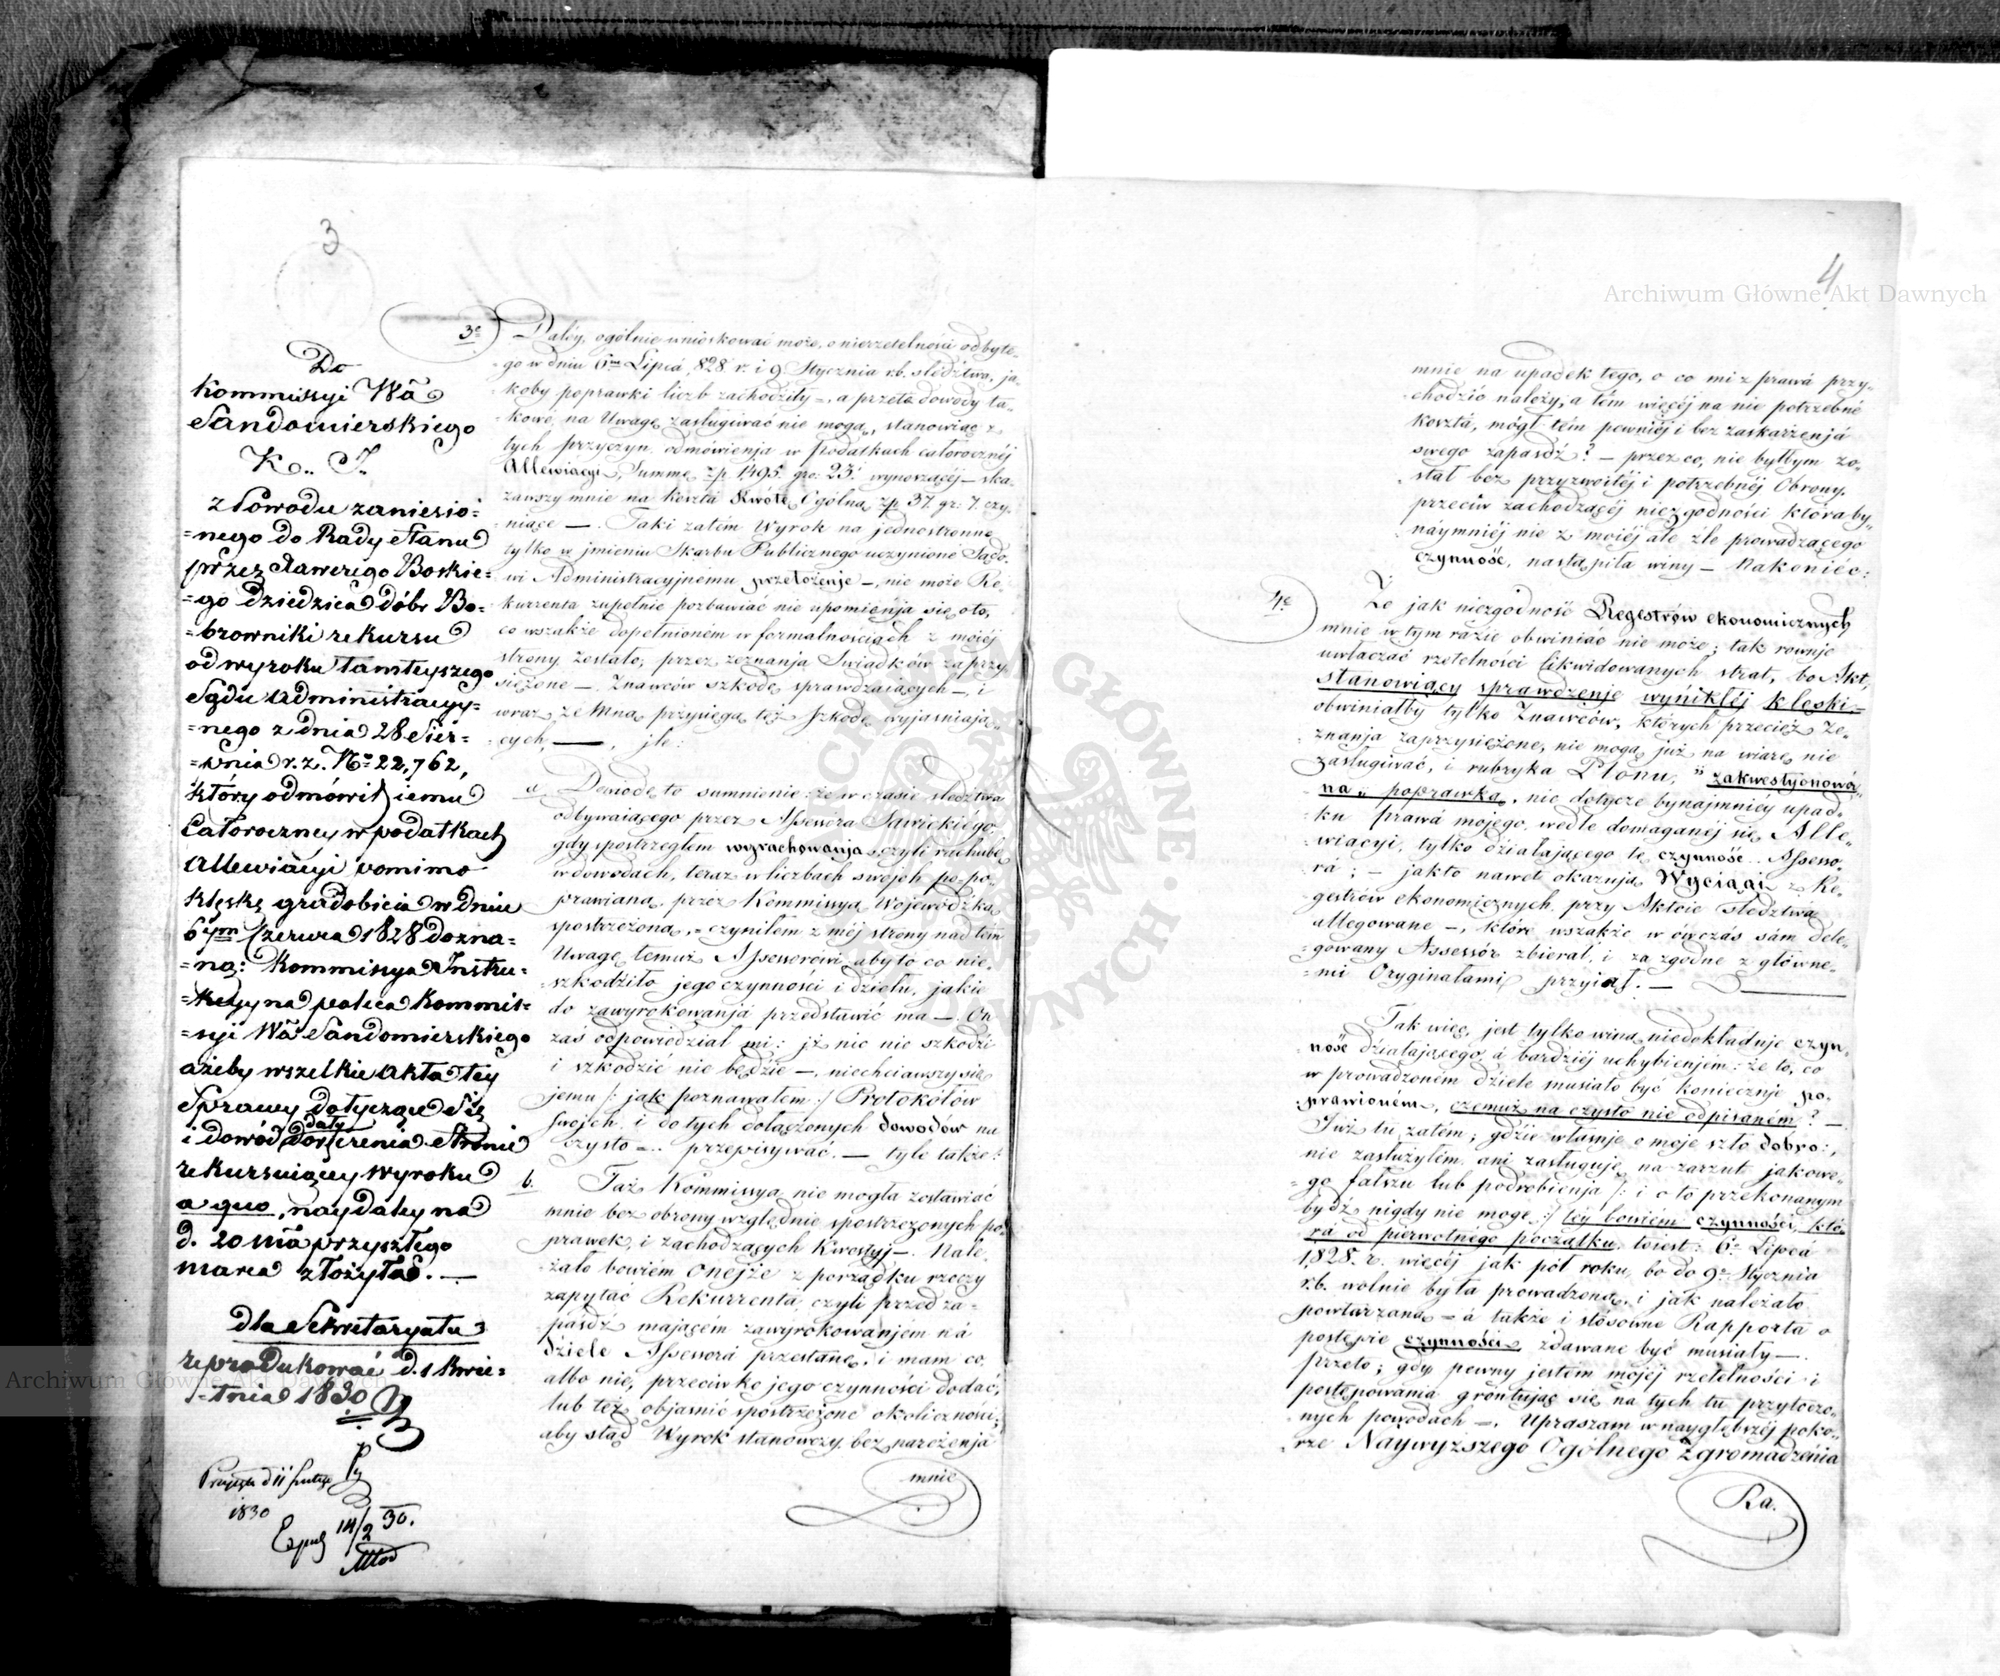 3
Do
Kommissyi Wã
Sandomierskiego
K.. J..
z Powodu zaniesio=
=nego do Rady Stanu
przez Xawerego Boskie=
=go dziedzica dóbr Bo=
=browniki rekursu
od wyroku tamteyszego
Sądu Administracyy=
=nego z dnia 28 Sier=
=pnia r. z. No 22,762,
który odmówił jemu
Całoroczney w podatkach
Allewiacyi pomimo
klęskę gradobicia w dniu
6tym Czerwca 1828 dozna=
=ną: Kommissya Instru=
=kcyyna poleca Kommis=
=syi Wã Sandomierskiego
ażeby wszelkie akta tey
Sprawy dotyczące Się
i dowód daty doręczenia Stronie
rekursuiącey Wyroku
a quo, naydaley na
d. 20 mã przyszłego
marca złożyła. —
dla Sekretaryatu
reprodukować d. 1 Kwie=
=tnia 1830
1830
14/2 30.
3e Daléy, ogólnie wnioskować może, o nierzetelności odbyte=
=go w dniu 6m Lipca 828 r. i 9 Stycznia r.b. śledztwa, ja=
=koby poprawki liczb zachodziły =, a przeto dowody ta=
=kowe, na Uwagę zasługiwać nie mogą, stanowiąc z
tych przyczyn odmówienja w Podatkach całorocznéj
Allewiacyi, Summę zp 1,495. gro: 23. wynoszącéj — ska=
zawszy mnie na koszta Kwotę Ogólną zp 37. gr: 7. czy=
=niące —. Taki zatém Wyrok na jednostronne
tylko w jmieniu Skarbu Publicznego uczynione Sądo=
wi Administracyjnemu przełożenje —, nie może Re=
kurrenta zupełnie pozbawiać nie upomienja się o to,
co wszakże dopełnioném w formalnościach z mojéj
strony zostało, przez zeznanja Swiadków zaprzy=
siężone — Znawców szkodę sprawdzaiących —, i
wraz ze Mną przysięgą też szkodę wyjasniają=
=cych, —, jle:
a, Dowodę to sumnienie: że w czasie sledztwa
odbywaiącego przez Assessora Sawickiégo
gdy spostrzegłem wyrachowanja czyli rachubę
w dowodach, teraz w liczbach swojch po=po=
prawianą, przez Kommissyą Wojewódzką
spostrzeżoną, = czyniłem z méj strony nad tém
Uwagę temuż Assessorowi, aby to co nie,
=szkodziło jego czynności i dziełu, jakie
do zawyrokowanja przedstawić ma —. On
zaś odpowiedział mi: jż nic nie szkodzi
i szkodzić nie będzie —, niechciawszy się
jemu /: jak poznawałem :/ Protokółów
swojch i do tych dołączonych dowodów na
czysto =.. przepisywać. — tyle także:
b. Taż Kommissya, nie mogła zostawiać
mnie bez obrony względnie spostrzeżonych po=
prawek, i zachodzących Kwestyj —. Nale,
=żało bowiém onejże z porządku rzeczy
zapytać Rekurrenta, czyli przed za=
=paśdź mającém zawyrokowanjem na
dziele Assessora przestanę, i mam co
albo nie, przeciwko jego czynności dodać,
lub też objasnić spostrzeżone okoliczności,
aby stąd Wyrok stanowczy, bez narażenja
mnie
4
mnie na upadek tego, o co mi z prawa przy=
=chodzić należy, a tém więcéj na nie potrzebné
koszta, mógł tém pewniéj i bez zaskarżenjá
swego zapaśdź? — przez co, nie byłbym zo=
=stał bez przyzwoitéj i potrzebnéj Obrony,
przeciw zachodzącéj niezgodności która by=
náymniéj nie z mojéj ale źle prowadzącego
czynność, nastąpiła winy — Nakoniec:
4e Że jak niezgodność Regestrów ekonomicznych
mnie w tym razie obwiniać nie może; tak rownje
uwłaczać rzetelności likwidowanych strat, bo Akt,
stanowiący sprawdzenje wynikłéj klęski —
obwiniałby tylko Znawców, których przecież ze=
=znanja zaprzysiężone, nie mogą już na wiarę nie
zasługiwać, i rubryka Plonu, „ zakwestyonowa=
=na „ poprawka, nie dotycze bynajmniéy upad=
=ku prawa mojego, wedle domaganéj się Alle=
=wiacyi, tylko działającego te czynność Assesso=
ra; — jakto nawet okazują Wyciągi z Re=
=gestrów ekonomicznych przy Akcie sledztwa
allegowane —, które wszakże w ówczás sám dele=
=gowany Assessór zbierał, i za zgodne z główne=
=mi Oryginałami przyiął. —
Tak więc, jest tylko wina, niedokładnje czyn=
ność działającego, á bardziéj uchybienjem: że to, co
w prowadzoném dziele musiało być koniecznje po=
prawioném, czemuż na czysto nie odpisaném? —
Już tu zatém; gdzie własnje o moje szło dobro:,
nie zasłużyłém, ani zasługuję na zarzut jakowe=
=go fałszu lub podrobienja /: i o to przekonanym
bydź nigdy nie mogę :/ téy bowiém czynności, któ=
rá od pierwotnégo początku, toiest: 6o Lipca
1828. r. więcéj jak pół roku, bo do 9o Stycznia
r.b. wolnie była prowadzoną, i jak należało
powtarzaną = á także i stósowne Rapporta o
postępie czynności, zdawane być musiały —.
przeto; gdy pewny jestem mojéj rzetelności i
postępowania gróntując się na tych tu przytoczo=
=nych powodach —. Upraszam w naygłębszéj poko=
=rze Naywyższego Ogólnego Zgromadzénia
Ra.
Archiwum Główne Akt Dawnych
Archiwum Główne Akt Dawnych
ARCHIWUM GŁÓWNE AKT DAWNYCH